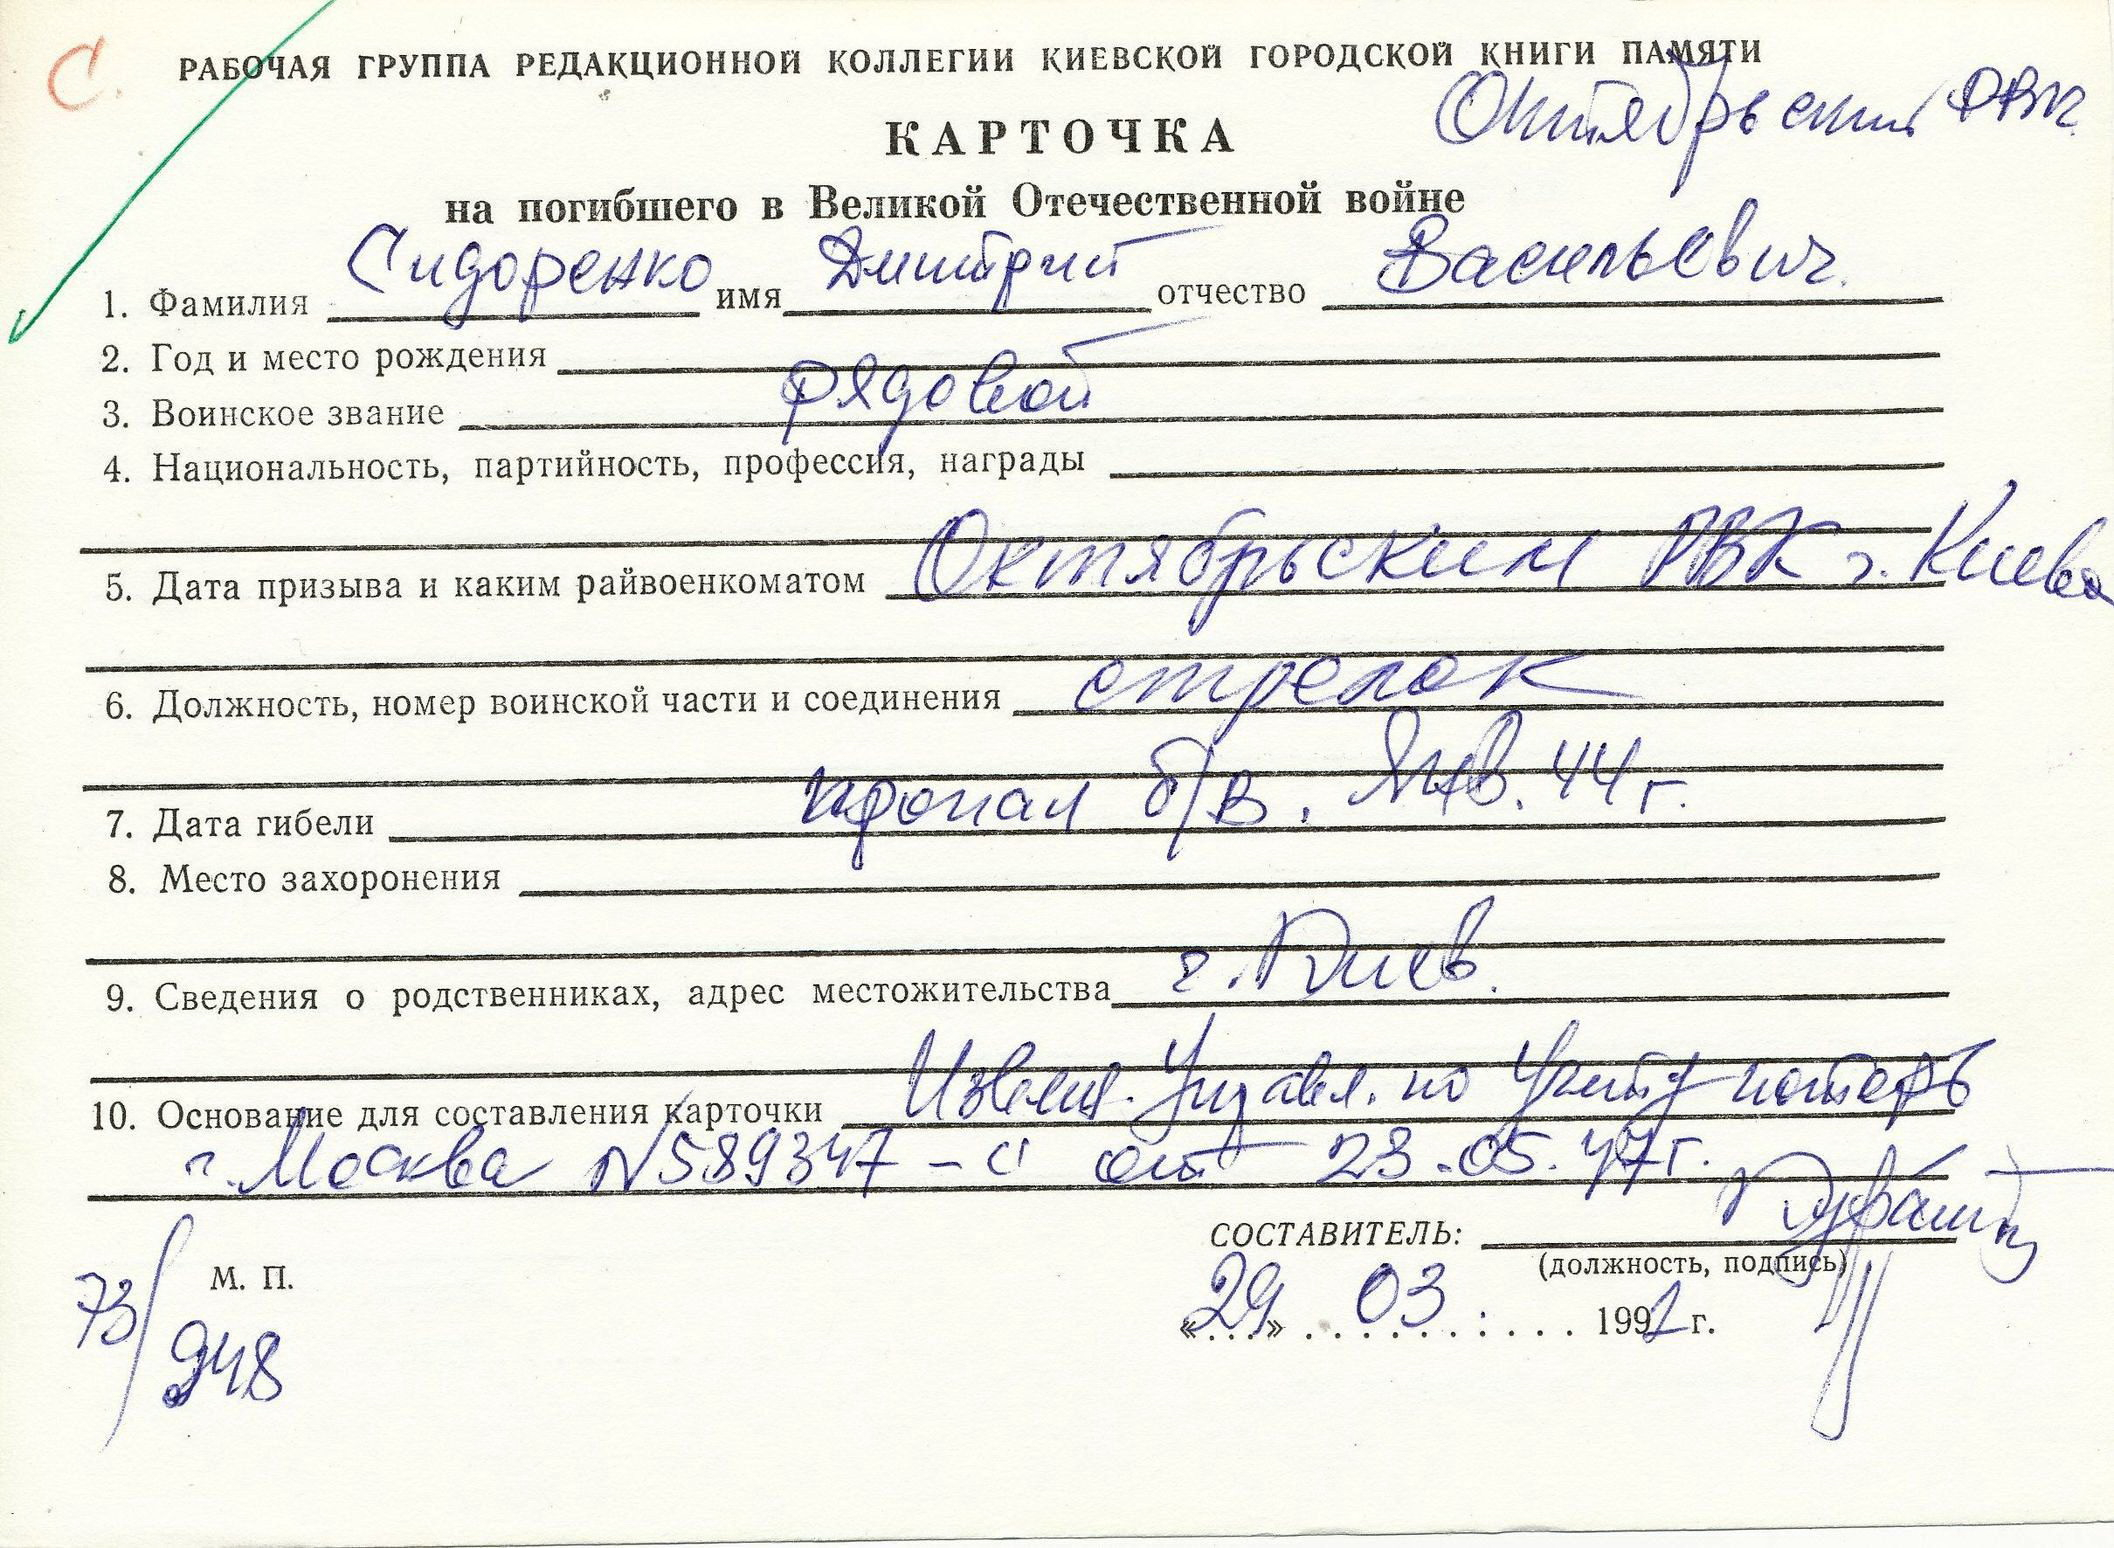 С.
РАБОЧАЯ ГРУППА РЕДАКЦИОННОЙ КОЛЛЕГИИ КИЕВСКОЙ ГОРОДСКОЙ КНИГИ ПАМЯТИ
Октябрьский РВК
КАРТОЧКА
на погибшего в Великой Отечественной войне
1. Фамилия Сидоренко имя Дмитрий отчество Васильевич
2. Год и место рождения
3. Воинское звание рядовой
4. Национальность, партийность, профессия, награды
5. Дата призыва и каким райвоенкоматом Октябрьским РВК г. Киева
6. Должность, номер воинской части и соединения стрелок
7. Дата гибели пропал б/в. Янв. 44 г.
8. Место захоронения
9. Сведения о родственниках, адрес местожительства г. Киев.
10. Основание для составления карточки Извещ. Управл. по учету потерь
г. Москва №589347-с от 23.05.47г.
СОСТАВИТЕЛЬ:
(должность, подпись)
М. П.
«29» 03 1992 г.
73/948